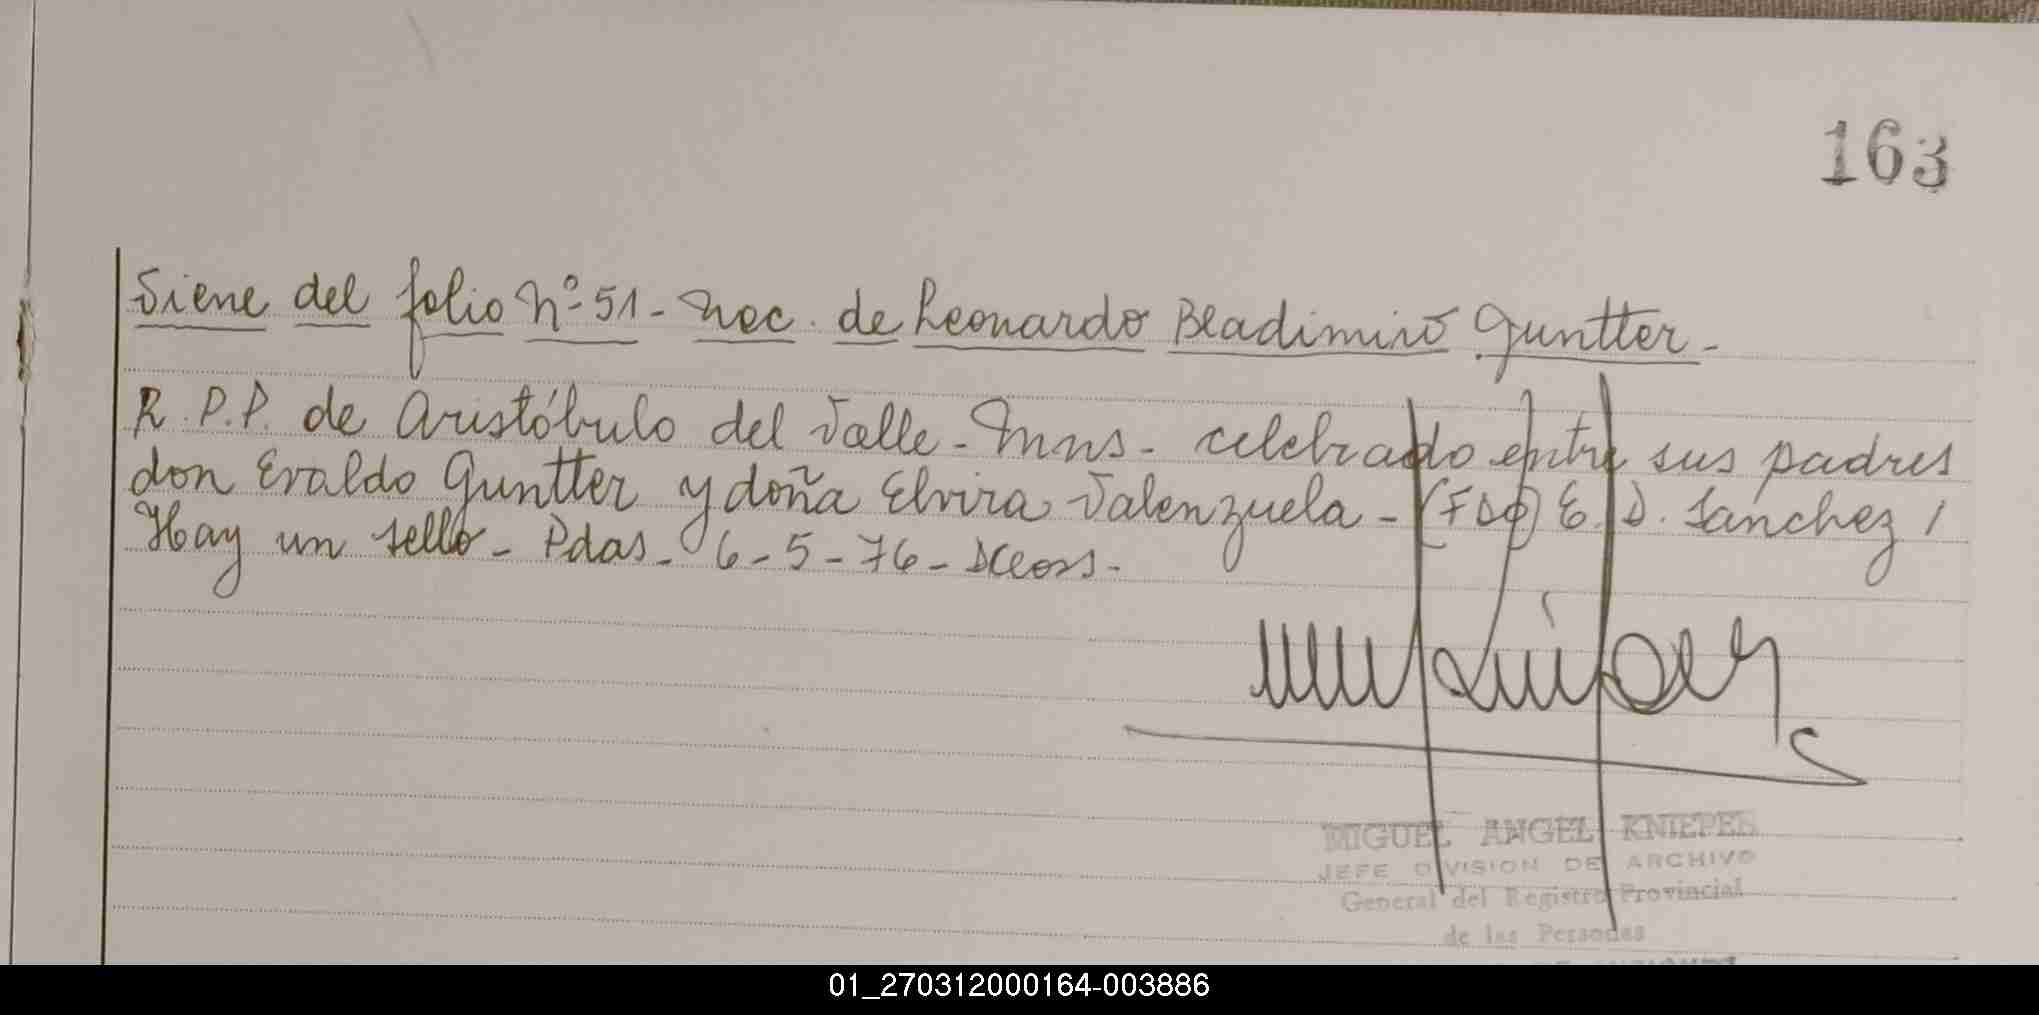 163
Viene del folio Nº 51 - Nac. de Leonardo Bladimiro Guntter -
R.P.P. de Aristóbulo del Valle - Mns - celebrado entre sus padres
don Evaldo Guntter y doña Elvira Valenzuela - (FDO) E. D. Sanchez /
Hay un sello - Pdas - 6-5-76 -
MIGUEL ANGEL KNIEPER
JEFE DIVISION DE ARCHIVO
General del Registro Provincial
de las Personas
01_270312000164-003886